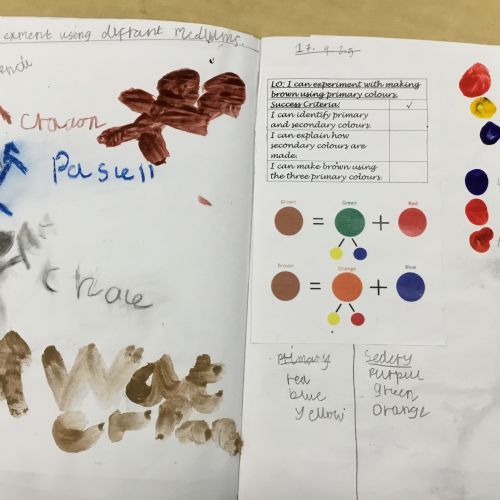 exment using diffrant mediums.
encil
Crauon
Pasuell
Chace
17. 9. 25
LO: I can experiment with making
brown using primary colours.
Success Criteria: ✓
I can identify primary
and secondary colours.
I can explain how
secondary colours are
made.
I can make brown using
the three primary colours.
Brown Green Red
= +
Brown Orange Blue
= +
Primary
red
blue
Yellow
Sedery
Purpul
green
Orange